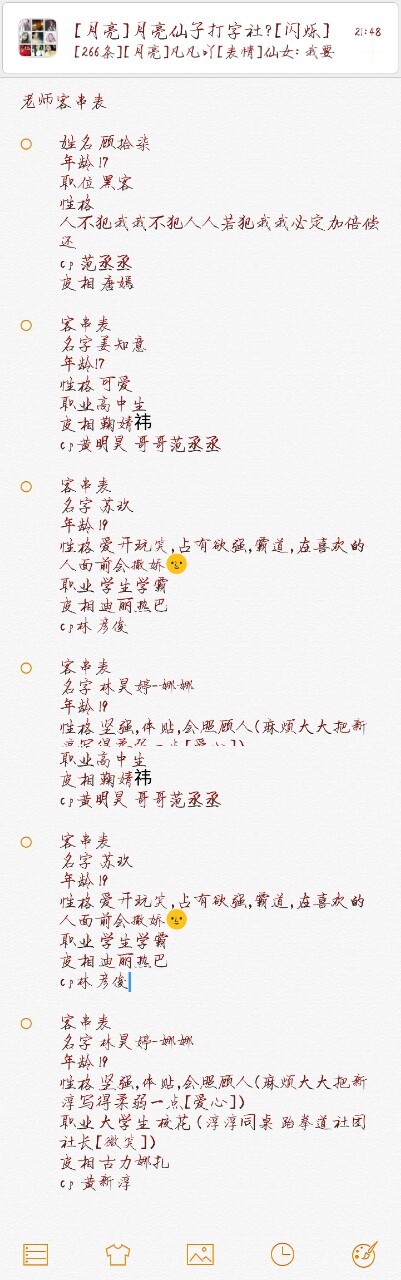 [月亮]月亮仙子打字社?[闪烁]
21:48
[266条][月亮]凡凡吖[表情]仙女: 我要
老师客串表
姓名 顾拾柒
年龄 17
职位 黑客
性格
人不犯我我不犯人人若犯我我必定加倍偿
还
cp 范丞丞
皮相 唐嫣
客串表
名字 姜知意
年龄17
性格 可爱
职业高中生
皮相 鞠婧祎
cp黄明昊 哥哥范丞丞
客串表
名字 苏欢
年龄 19
性格 爱开玩笑,占有欲强,霸道,在喜欢的
人面前会撒娇🌝
职业 学生 学霸
皮相迪丽热巴
cp林彦俊
客串表
名字 林昊婷-娜娜
年龄 19
性格 坚强,体贴,会照顾人(麻烦大大把新
淳写得柔弱一点[爱心])
职业高中生
皮相 鞠婧祎
cp黄明昊 哥哥范丞丞
客串表
名字 苏欢
年龄 19
性格 爱开玩笑,占有欲强,霸道,在喜欢的
人面前会撒娇🌝
职业 学生 学霸
皮相迪丽热巴
cp林彦俊
客串表
名字 林昊婷-娜娜
年龄 19
性格 坚强,体贴,会照顾人(麻烦大大把新
淳写得柔弱一点[爱心])
职业 大学生 校花(淳淳同桌 跆拳道社团
社长[微笑])
皮相古力娜扎
cp 黄新淳